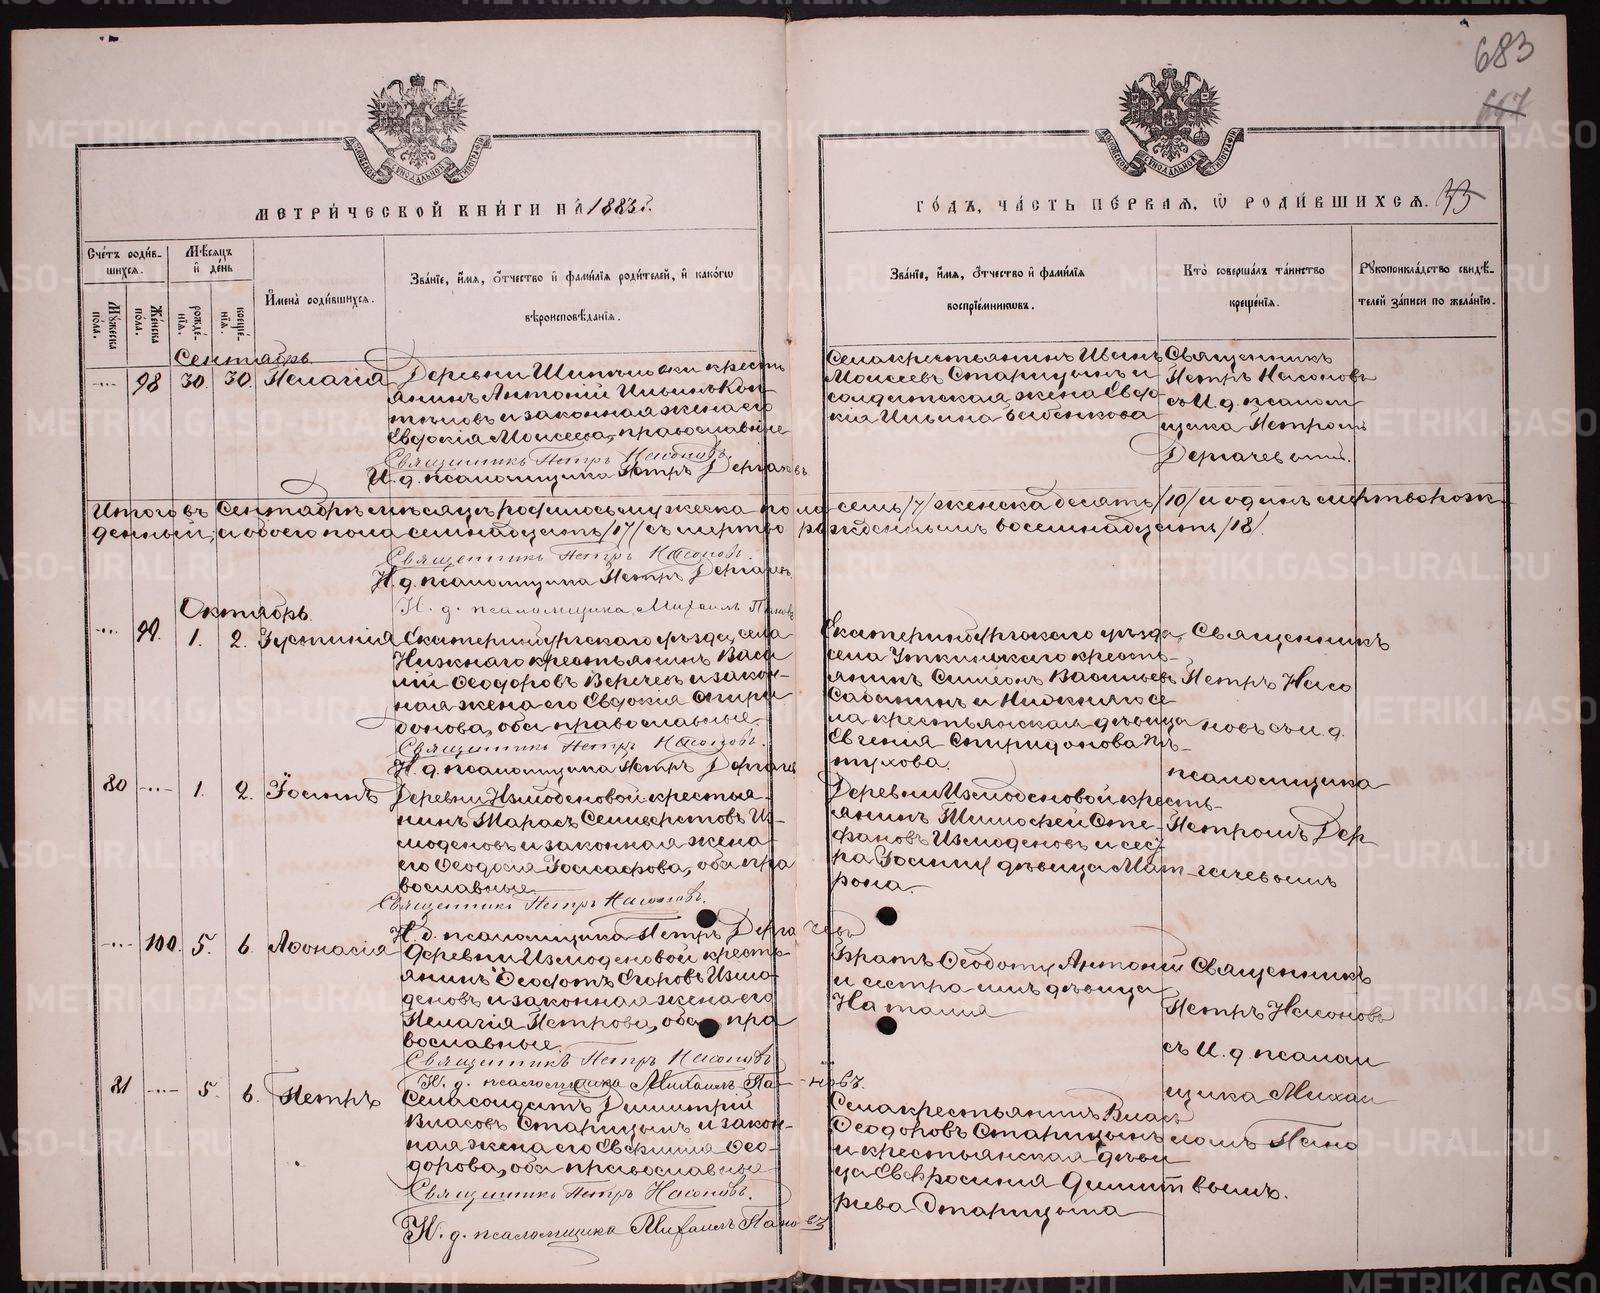 683
647
МЕТРИЧЕСКОЙ КНИГИ НА 1883й.
ГОДЪ, ЧАСТЬ ПЕРВАЯ, Ѡ РОДИВШИХСЯ.
Счетъ родив-
шихся.
Мужеска пола.
Женска пола.
Мѣсяцъ
и день
рожде-
нїя.
креще-
нїя.
Имена родившихся.
Званїе, имя, отчество и фамилїя родителей, и какогѡ
вѣроисповѣданїя.
Званїе, имя, отчество и фамилїя
воспрїемниковъ.
Кто совершалъ таинство
крещенїя.
Рукоприкладство свидѣ-
телей записи по желанїю.
Сентябрь.
98 30. 30. Пелагія
Деревни крестъ
янинъ Антоній Ильинъ Коп-
тѣловъ и законная жена его
Евдокія Моисеева, православные
Священникъ Петръ Насоновъ.
И. д. псаломщика Петръ Дергачевъ
Селакрестьянинъ Иванъ
Моисеевъ Старицынъ и
солдатская жена Евдо-
кія Ильина Бабенкова
Священникъ
Петръ Насоновъ
съ И. д. псалом
щика Петромъ
Дергачевымъ.
Итого въ Сентябрѣ мѣсяцѣ родилось мужеска пола семь /7/ женска десять /10/ и одинъ мертворож-
денный, а обоего пола семнадцать /17/ съ мертворожденнымъ восемнадцать /18/.
Священникъ Петръ Насоновъ.
И. д. псаломщика Петръ Дергачевъ
И. д. псаломщика Михаилъ Пановъ
Октябрь.
99. 1. 2. Іустинія
Екатеринбургскаго уѣзда, села
Нижнаго крестьянинъ Васи
лій Ѳеодоровъ Веречевъ и закон-
ная жена его Евдокія Спири
донова, оба православные
Священникъ Петръ Насоновъ.
И. д. псаломщика Петръ Дергачевъ
Екатеринбургскаго уѣзда,
села Уткинскаго кресть-
янинъ Симеонъ Васильевъ
Сабанинъ и Нижняго се
ла крестьянская дѣвица
Евгенія Спиридонова Пѣ-
тухова.
Священникъ
Петръ Насо
новъ съ и. д.
псаломщика
Петромъ Дер
гачевымъ
80 1. 2. Іоаннъ
Деревни Измоденовой крестья-
нинъ Тарасъ Селиверстовъ Из-
моденовъ и законная жена
его Ѳеодосія Іоасафова, оба пра
вославные
Священникъ Петръ Насоновъ.
И. д. псаломщика Петръ Дергачевъ
Деревни Измоденовой кресть-
янинъ Тимоѳей Сте-
фановъ Измоденовъ и сест
ра Іоанну дѣвица Мат-
рона.
100. 5. 6. Аѳонасія
Деревни Измоденовой кресть
янинъ Ѳеодотъ Егоровъ Измо-
деновъ и законная жена его
Пелагія Петрова, оба пра
вославные.
Священникъ Петръ Насоновъ
И. д. псаломщика Михаилъ Пановъ.
Братъ Ѳеодоту Антоній
и сестра имъ дѣвица
Наталія
Священникъ
Петръ Насоновъ
съ И. д. псалом
щика Михаи
ломъ Пано
вымъ.
81 5. 6. Петръ
Села солдатъ Димитрій
Власовъ Старицынъ и закон-
ная жена его Евфимія Ѳео-
дорова, оба православные
Священникъ Петръ Насоновъ.
И. д. псаломщика Михаилъ Пановъ
Села крестьянинъ Власъ
Ѳеодоровъ Старицынъ
и крестьянская дѣви
ца Евфросинія Димит
риева Старицына